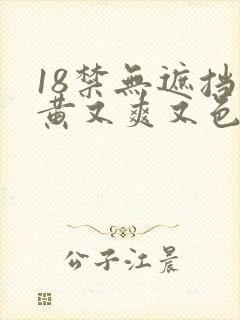 18禁無遮挡
黄又爽又色
公子江晨